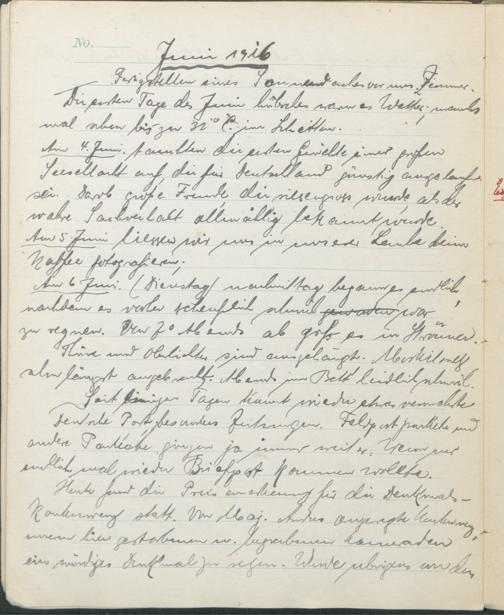 No.
Juni 1916
Fertigstellen eines Sonnendaches vor uns. Zimmer.
Die ersten Tage des Juni hübsches warmes Wetter; manch
mal oben bis zu 32° C. im Schatten.
Am 4. Juni. tauchten die ersten Gerüchte einer großen
Seeschlacht auf, die für Deutschland günstig ausgelaufen
sei. Darob große Freude die riesengross wurde als der
wahre Sachverhalt allmällig bekannt wurde.
Am 5 Juni liessen wir uns in unserer Laube beim
Kaffee fotografieren;
Am 6 Juni. (Dienstag) nachmittag begann es endlich,
nachdem es vorher scheusslich schwül geworden war
zu regnen. Von 7° Abends ab goss es in Strömen.
Türe und Oberlichter sind angelangt. Moskitonetz
schon längst angebracht. Abends im Bett leidlich schwül.
Seit einigen Tagen kommt wieder etwas vermehrte
Deutsche Post besonders Zeitungen. Feldpostpakete und
andere Packete gingen ja immer weiter, wenn nur
endlich mal wieder Briefpost kommen wollte.
Heute fand die Preiserteilung für die Denkmals-
Konkurrenz statt. Von Maj. Anders angeregte Konkurrenz,
unseren hier gestorbenen u. begrabenen Kameraden
ein würdiges Denkmal zu setzen. Wurde übrigens um den